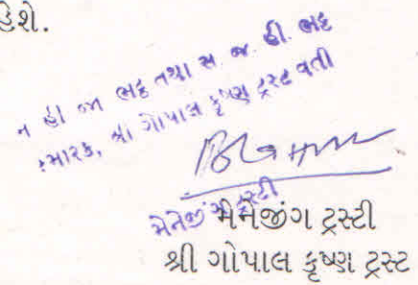 હેશે.
ન હી જા ભટ્ટ તથા સ. જ. હી. ભટ્ટ
સ્મારક, શ્રી ગોપાલ કૃષ્ણ ટ્રસ્ટ વતી
મેનેજીંગ ટ્રસ્ટી
મેનેજીંગ ટ્રસ્ટી
શ્રી ગોપાલ કૃષ્ણ ટ્રસ્ટ